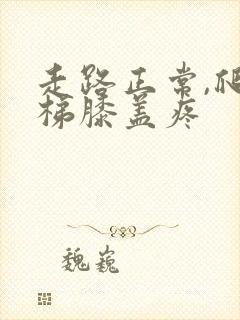 走路正常,爬
梯膝盖疼
魏巍